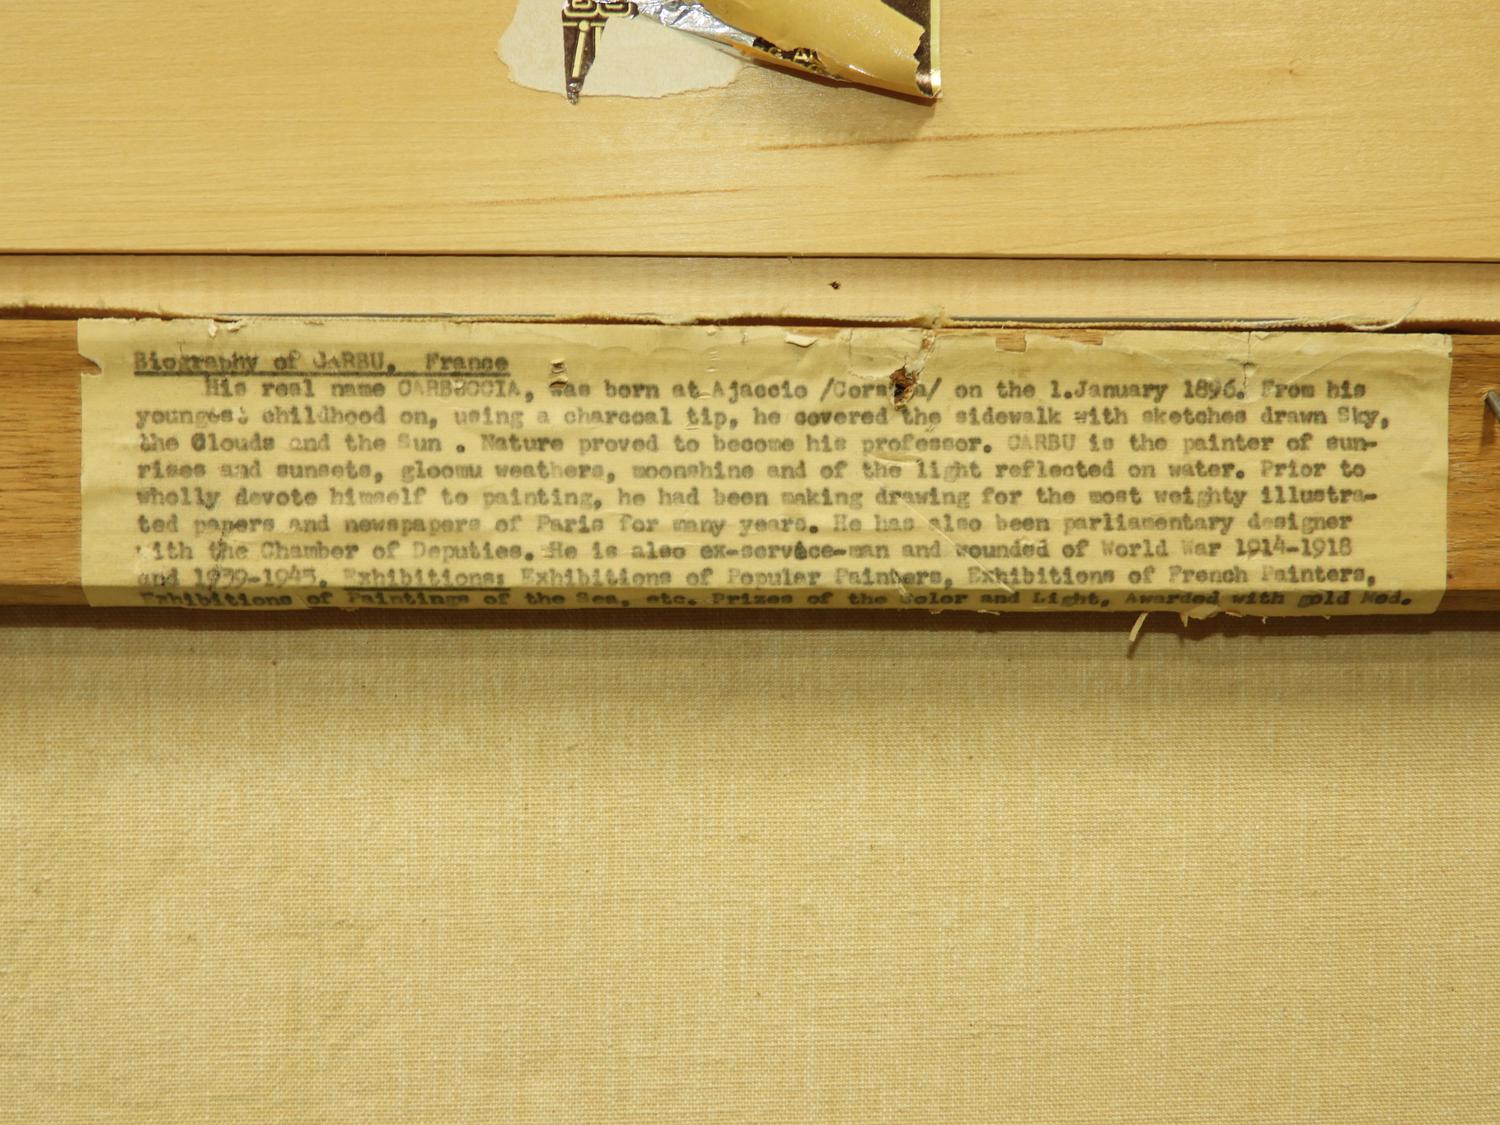 Biography of CARBU, France
His real name CARBUCCIA, was born at Ajaccio /Corsica/ on the 1.January 1896. From his
youngest childhood on, using a charcoal tip, he covered the sidewalk with sketches drawn Sky,
the Clouds and the Sun . Nature proved to become his professor. CARBU is the painter of sun-
rises and sunsets, gloomu weathers, moonshine and of the light reflected on water. Prior to
wholly devote himself to painting, he had been making drawing for the most weighty illustra-
ted papers and newspapers of Paris for many years. He has also been parliamentary designer
with the Chamber of Deputies. He is also ex-service-man and wounded of World War 1914-1918
and 1939-1945. Exhibitions: Exhibitions of Popular Painters, Exhibitions of French Painters,
Exhibitions of Paintings of the Sea, etc. Prizes of the Color and Light, Awarded with gold Med.